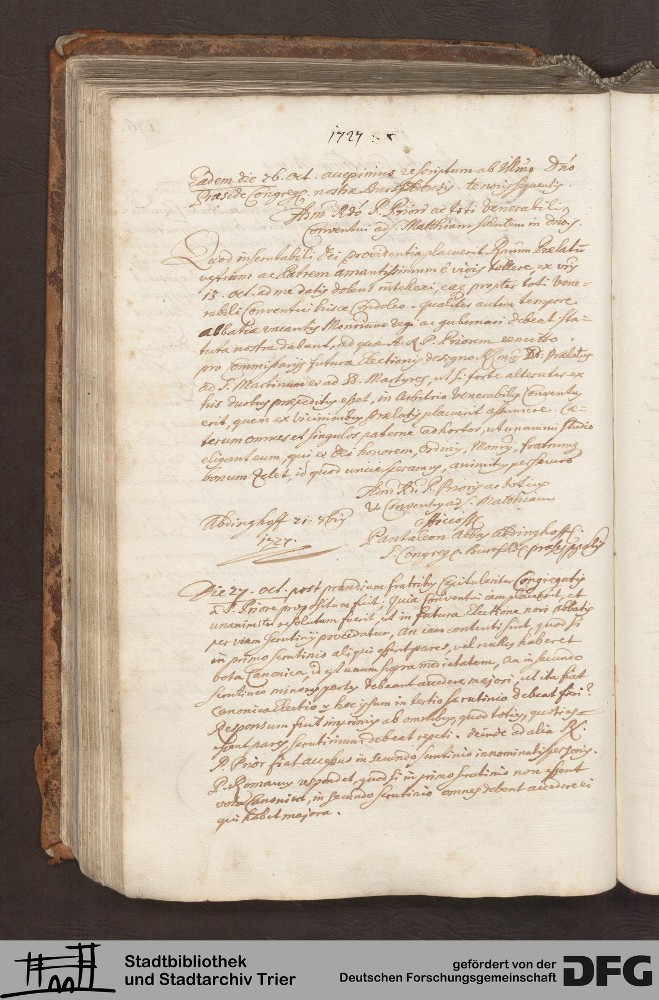 1727
Eadem die 26. Oct. accepimus rescriptum ab Illmo Dno
Præside Congregis nostræ Bursfeldensis tenoris sequentis
Adm Rdo P. Priori ac toti Venerabili
Conventui ad S. Matthiam salutem in Dno.
Quod inscrutabili Dei providentia placuerit Rmum Prælatum
vestrum ac Patrem amantissimum è vivis tollere, ex vris
15. Oct. ad me datis dolens intellexi, eaq propter toti Vene-
rabili Conventui hisce Condoleo. Qualiter autem tempore
abbatiæ vacantis Monrium regi ac gubernari debeat Sta-
tuta nostra dabunt, ad quæ A. R. P. Priorem remitto.
pro Commissariis futuræ Electionis designo Prælatos
ad S. Martinum et ad SS. Martyres, ut si forte alteruter ex
his duobus præpeditus esset, in Arbitrio Venerabilis Conventus
erit, quem ex Vicinioribus Prælatis placuerit assumere. Cæ-
terum omnes et singulos paternè adhortor, ut unanimi studio
eligant eum, qui ex Dei honorem, Ordinis, Monrii, fratrumq
bonum zelet, id quod unicè speramus, animitus persevero
Adm Rdi P. Prioris ac totius
V. Conventus ad S. Matthiam
Abdinghoff 21. 8bris
1727.
officioss
Pantaleon Abbas Abdinghoff
S. Congreg. Bursfeld. præses pplis
Die 27. Oct. post prandium fratribus Capitulariter Congregatis
a P. Priore propositum fuit; quia Conventui iam placuerit, et
unanimiter resolutum fuerit, ut in futura Electione novi Abbatis
per viam scrutinii procedatur, An iam contenti sint, quod si
in primo scrutinio aliqui essent pares, vel nullus haberet
vota Canonica, id est unum supra medietatem, an in secundo
scrutinio minoris partis debeant accedere majori, ut ita fiat
Canonica Electio, hoc ipsum in tertio scrutinio debeat fieri?
Responsum fuit imprimis ab omnibus, quod toties, quoties
essent pares scrutinium debeat repeti. deinde ad alia R.
P. Prior fiat accessus in secundo scrutinio innominatis personis.
P. Romanus respondet, quod si in primo scrutinio non essent
vota Canonica, in secundo scrutinio omnes debent accedere ei
qui habet majora.
Stadtbibliothek
und Stadtarchiv Trier
gefördert von der
Deutschen Forschungsgemeinschaft
DFG